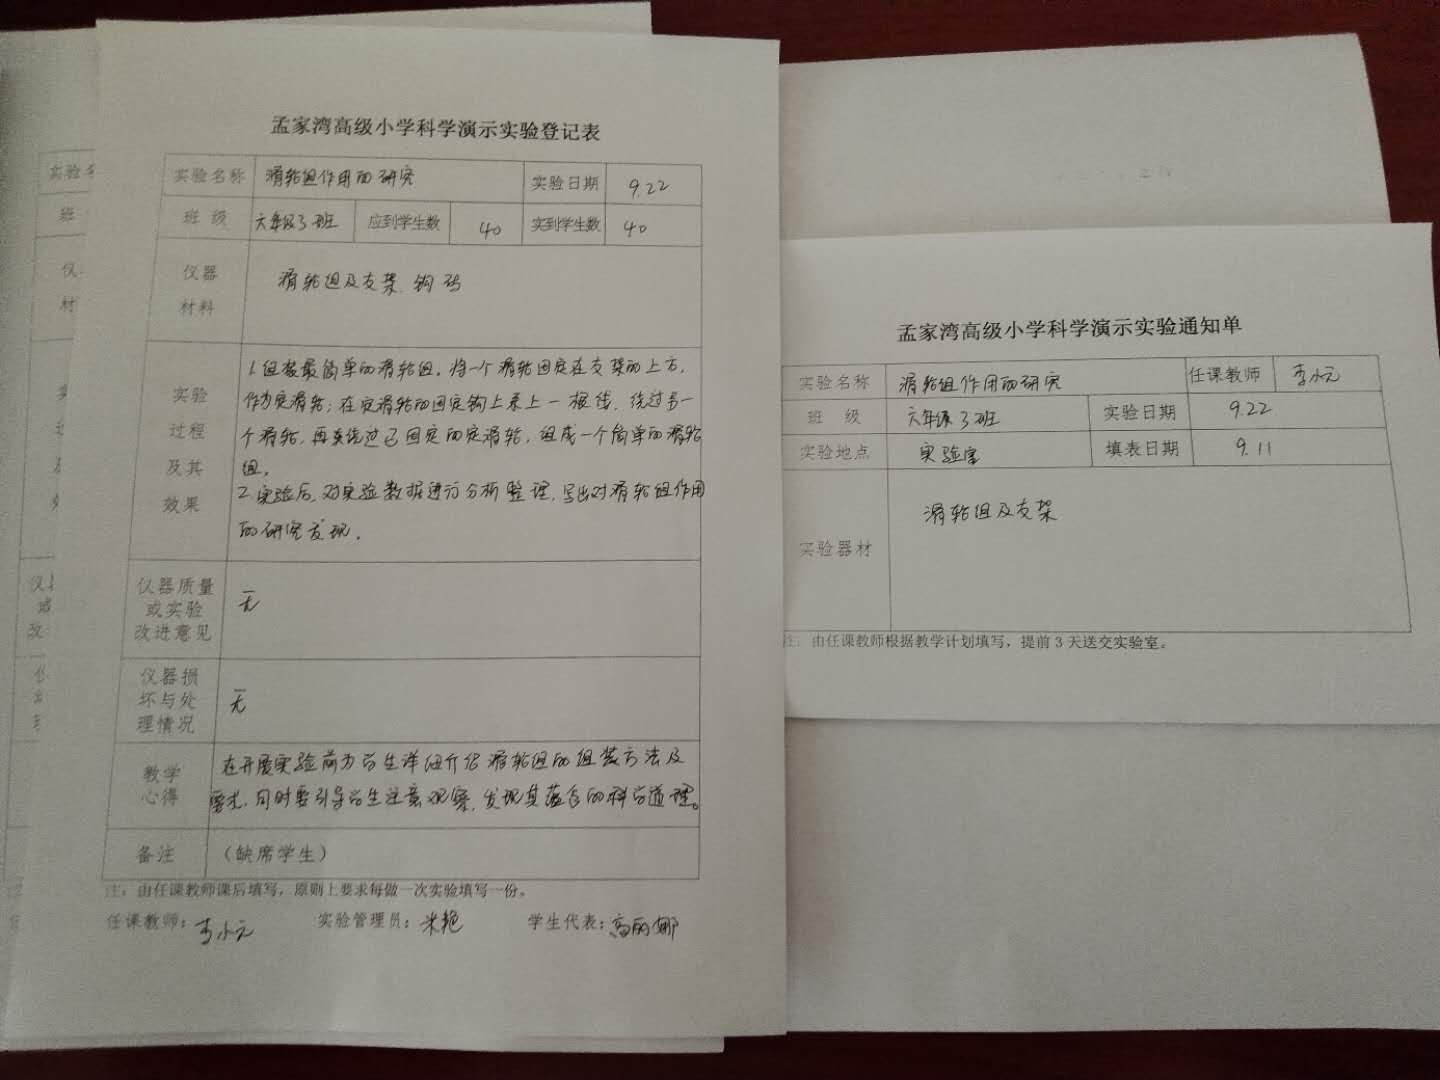 孟家湾高级小学科学演示实验登记表
实验名称 滑轮组作用的研究 实验日期 9.22
班 级 六年级3班 应到学生数 40 实到学生数 40
仪器
材料
滑轮组及支架、钩码
实验
过程
及其
效果
1.组装最简单的滑轮组。将一个滑轮固定在支架的上方,
作为定滑轮;在定滑轮的固定钩上系上一根线,绕过另一
个滑轮,再绕过已固定的定滑轮,组成一个简单的滑轮
组。
2.实验后,对实验数据进行分析整理,写出对滑轮组作用
的研究发现。
仪器质量
或实验
改进意见
无
仪器损
坏与处
理情况
无
教学
心得
在开展实验前为学生详细介绍滑轮组的组装方法及
要求,同时要引导学生注意观察,发现其蕴含的科学道理。
备注 (缺席学生)
注:由任课教师课后填写,原则上要求每做一次实验填写一份。
任课教师:李小元 实验管理员:米艳 学生代表:高丽娜
实验名
班
仪
材
孟家湾高级小学科学演示实验通知单
实验名称 滑轮组作用的研究 任课教师 李小元
班 级 六年级3班 实验日期 9.22
实验地点 实验室 填表日期 9.11
实验器材
滑轮组及支架
注:由任课教师根据教学计划填写,提前3天送交实验室。